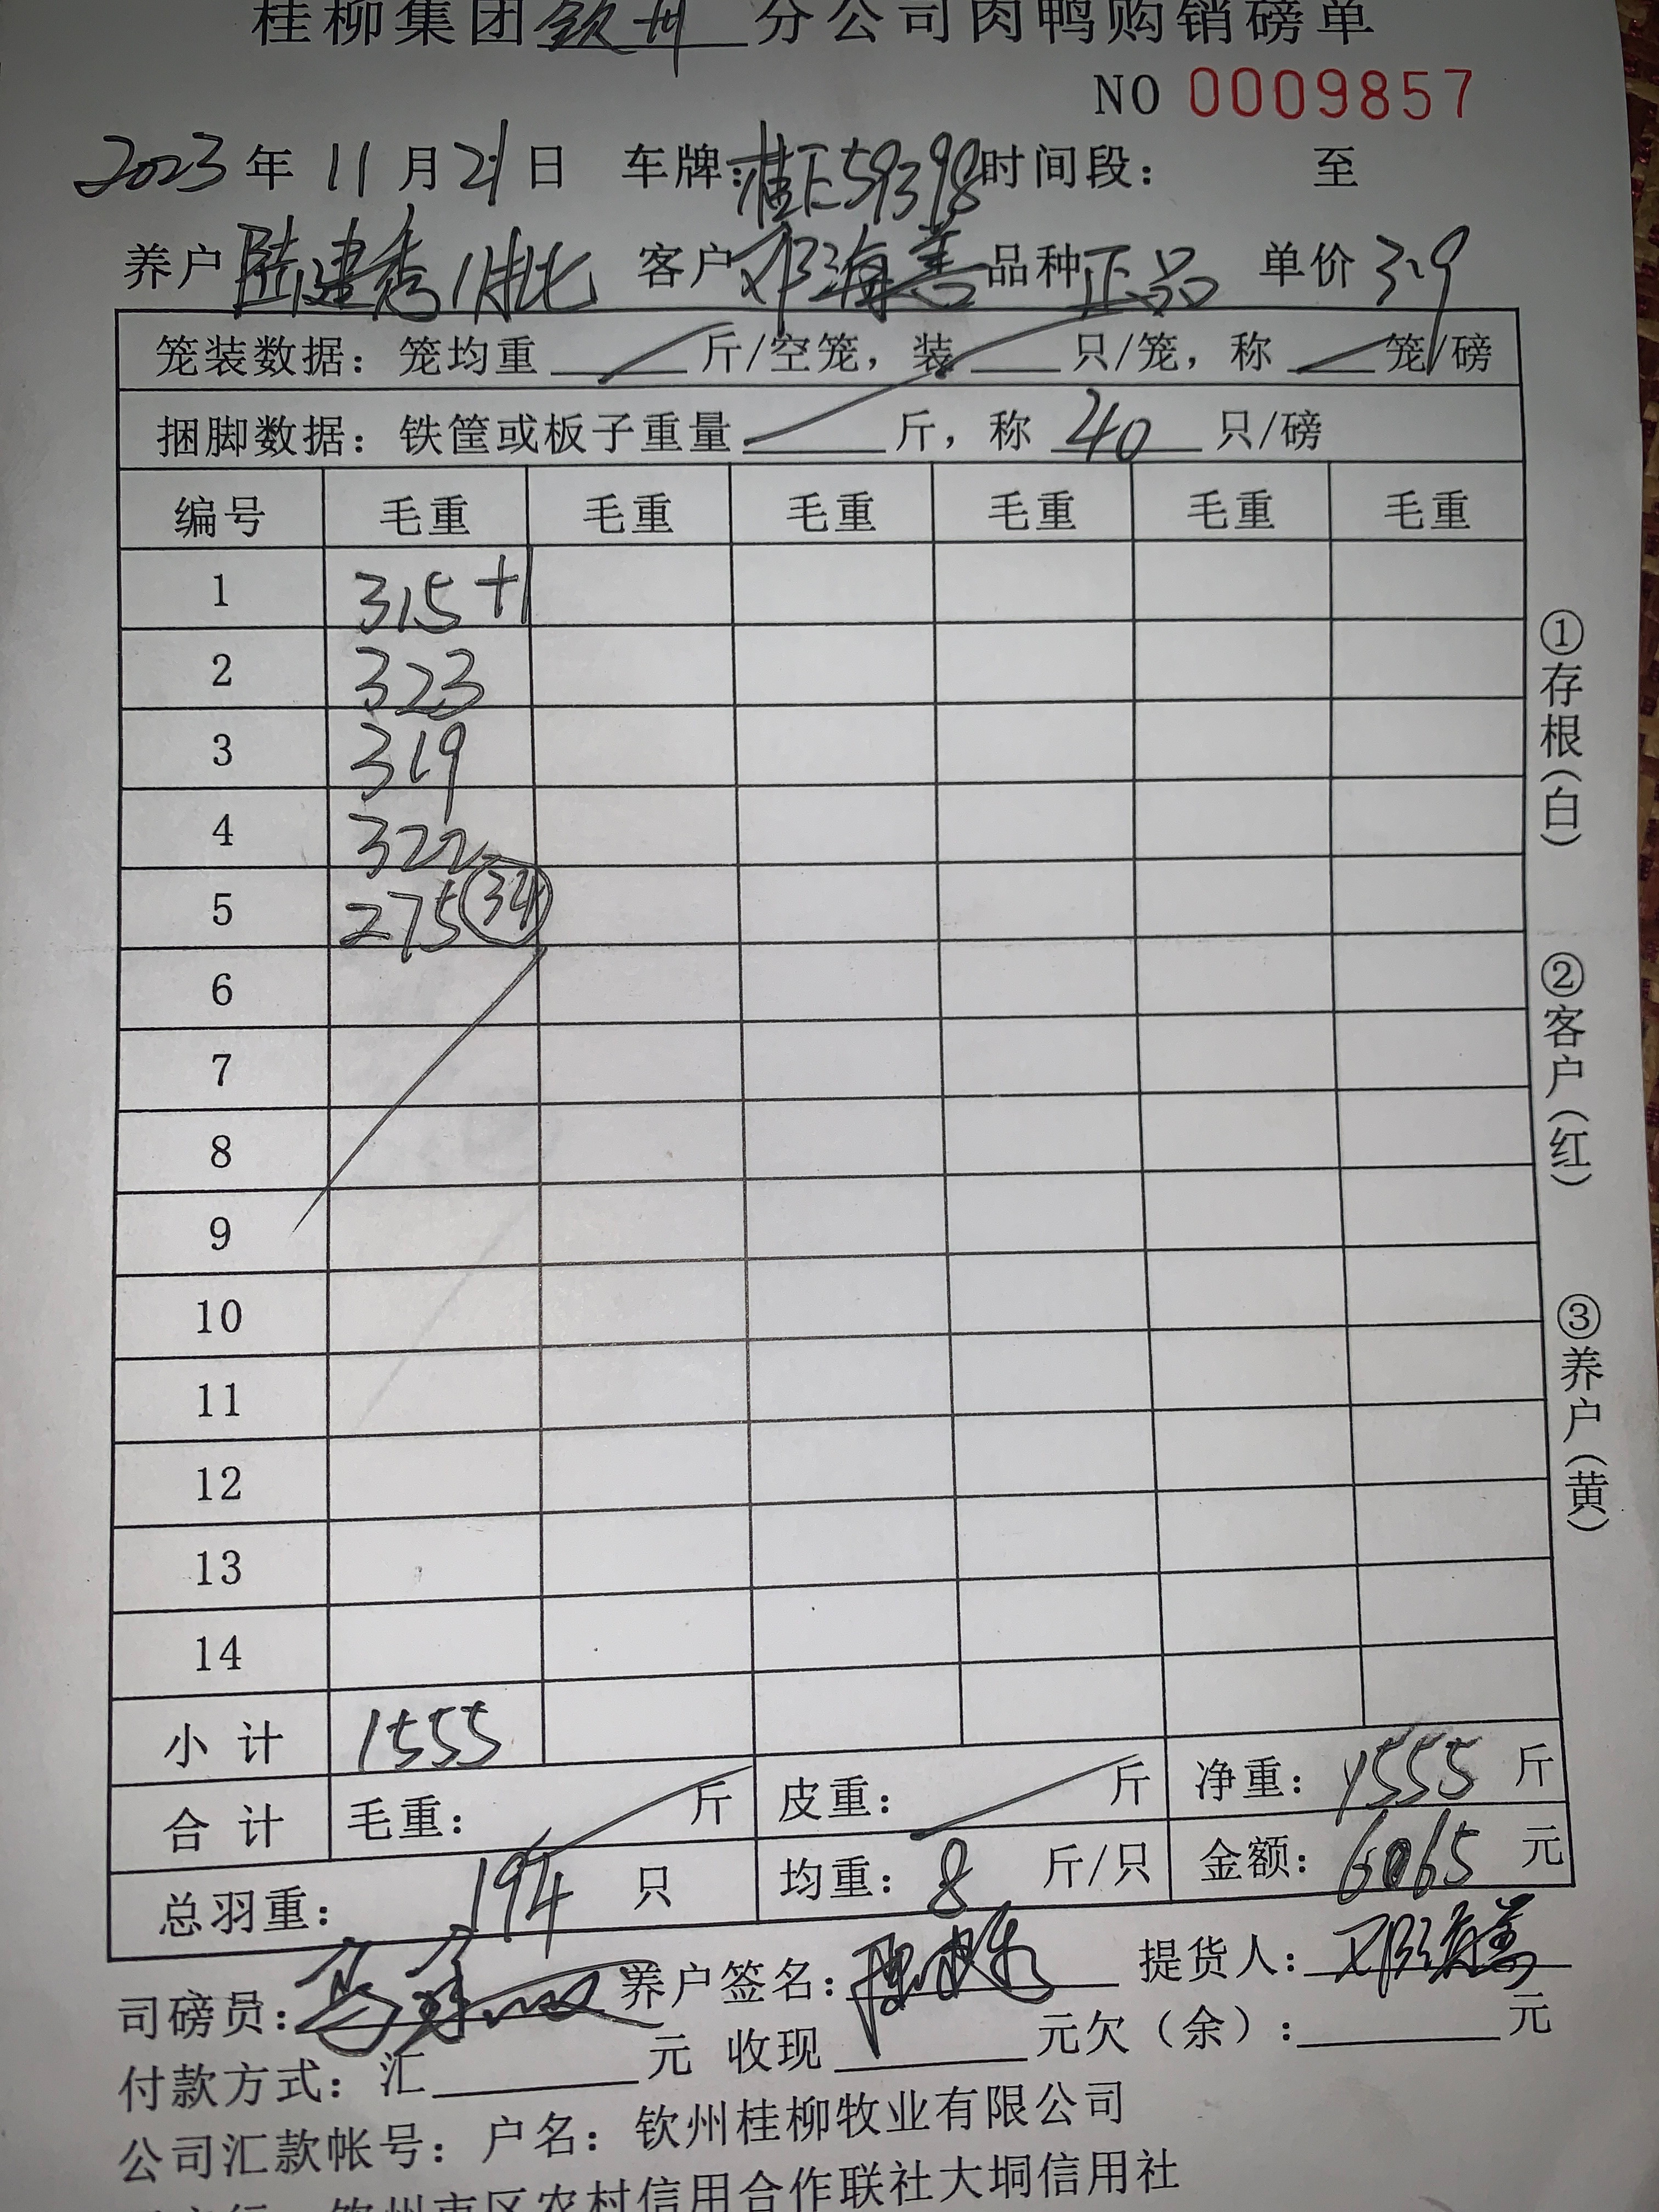 桂柳集团钦州分公司肉鸭购销磅单
NO 0009857
2023年 11月21日 车牌:桂E59398 时间段: 至
养户 陆建秀1批 客户 邓海善 品种 正品 单价 3.9
笼装数据: 笼均重 斤/空笼, 装 只/笼, 称 笼/磅
捆脚数据: 铁筐或板子重量 斤, 称 40 只/磅
编号 毛重 毛重 毛重 毛重 毛重 毛重
1 315 +1
2 323
3 319
4 322
5 275 34
6
7
8
9
10
11
12
13
14
小计 1555
合计 毛重: 斤 皮重: 斤 净重: 1555 斤
总羽重: 194 只 均重: 8 斤/只 金额: 6065 元
司磅员: 养户签名: 提货人: 邓海善
付款方式: 汇 元 收现 元欠(余): 元
公司汇款帐号: 户名: 钦州桂柳牧业有限公司
钦州市区农村信用合作联社大垌信用社
①存根(白)
②客户(红)
③养户(黄)